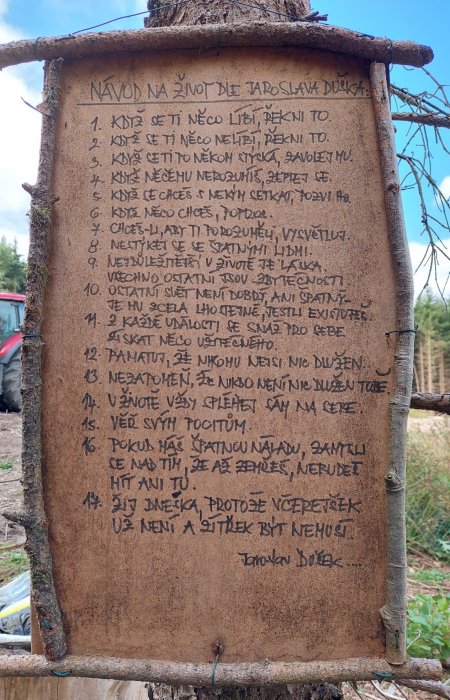 NÁVOD NA ŽIVOT DLE JAROSLAVA DUŠKA:
1. KDYŽ SE TI NĚCO LÍBÍ, ŘEKNI TO.
2. KDYŽ SE TI NĚCO NELÍBÍ, ŘEKNI TO.
3. KDYŽ SE TI PO NĚKOM STÝSKÁ, ZAVOLEJ MU.
4. KDYŽ NĚČEMU NEROZUMÍŠ, ZEPTEJ SE.
5. KDYŽ SE CHCEŠ S NĚKÝM SETKAT, POZVI HO.
6. KDYŽ NĚCO CHCEŠ, POPROS.
7. CHCEŠ-LI, ABY TI POROZUMĚLI, VYSVĚTLUJ.
8. NESTÝKEJ SE SE ŠPATNÝMI LIDMI.
9. NEJDŮLEŽITĚJŠÍ V ŽIVOTĚ JE LÁSKA.
VŠECHNO OSTATNÍ JSOU ZBYTEČNOSTI.
10. OSTATNÍ SVĚT NENÍ DOBRÝ, ANI ŠPATNÝ
JE MU ZCELA LHOSTEJNÉ, JESTLI EXISTUJEŠ.
11. Z KAŽDÉ UDÁLOSTI SE SNAŽ PRO SEBE
ZÍSKAT NĚCO UŽITEČNÉHO.
12. PAMATUJ, ŽE NIKOMU NEJSI NIC DLUŽEN.
13. NEZAPOMEŇ, ŽE NIKDO NENÍ NIC DLUŽEN TOBĚ.
14. V ŽIVOTĚ VŽDY SPLÉHEJ SÁM NA SEBE.
15. VĚŘ SVÝM POCITŮM.
16. POKUD MÁŠ ŠPATNOU NÁLADU, ZAMYSLI
SE NAD TÍM, ŽE AŽ ZEMŘEŠ, NEBUDEŠ
MÍT ANI TU.
17. ŽIJ DNEŠKA, PROTOŽE VČEREJŠEK
UŽ NENÍ A ZÍTŘEK BÝT NEMUSÍ.
Jaroslav DUŠEK ....